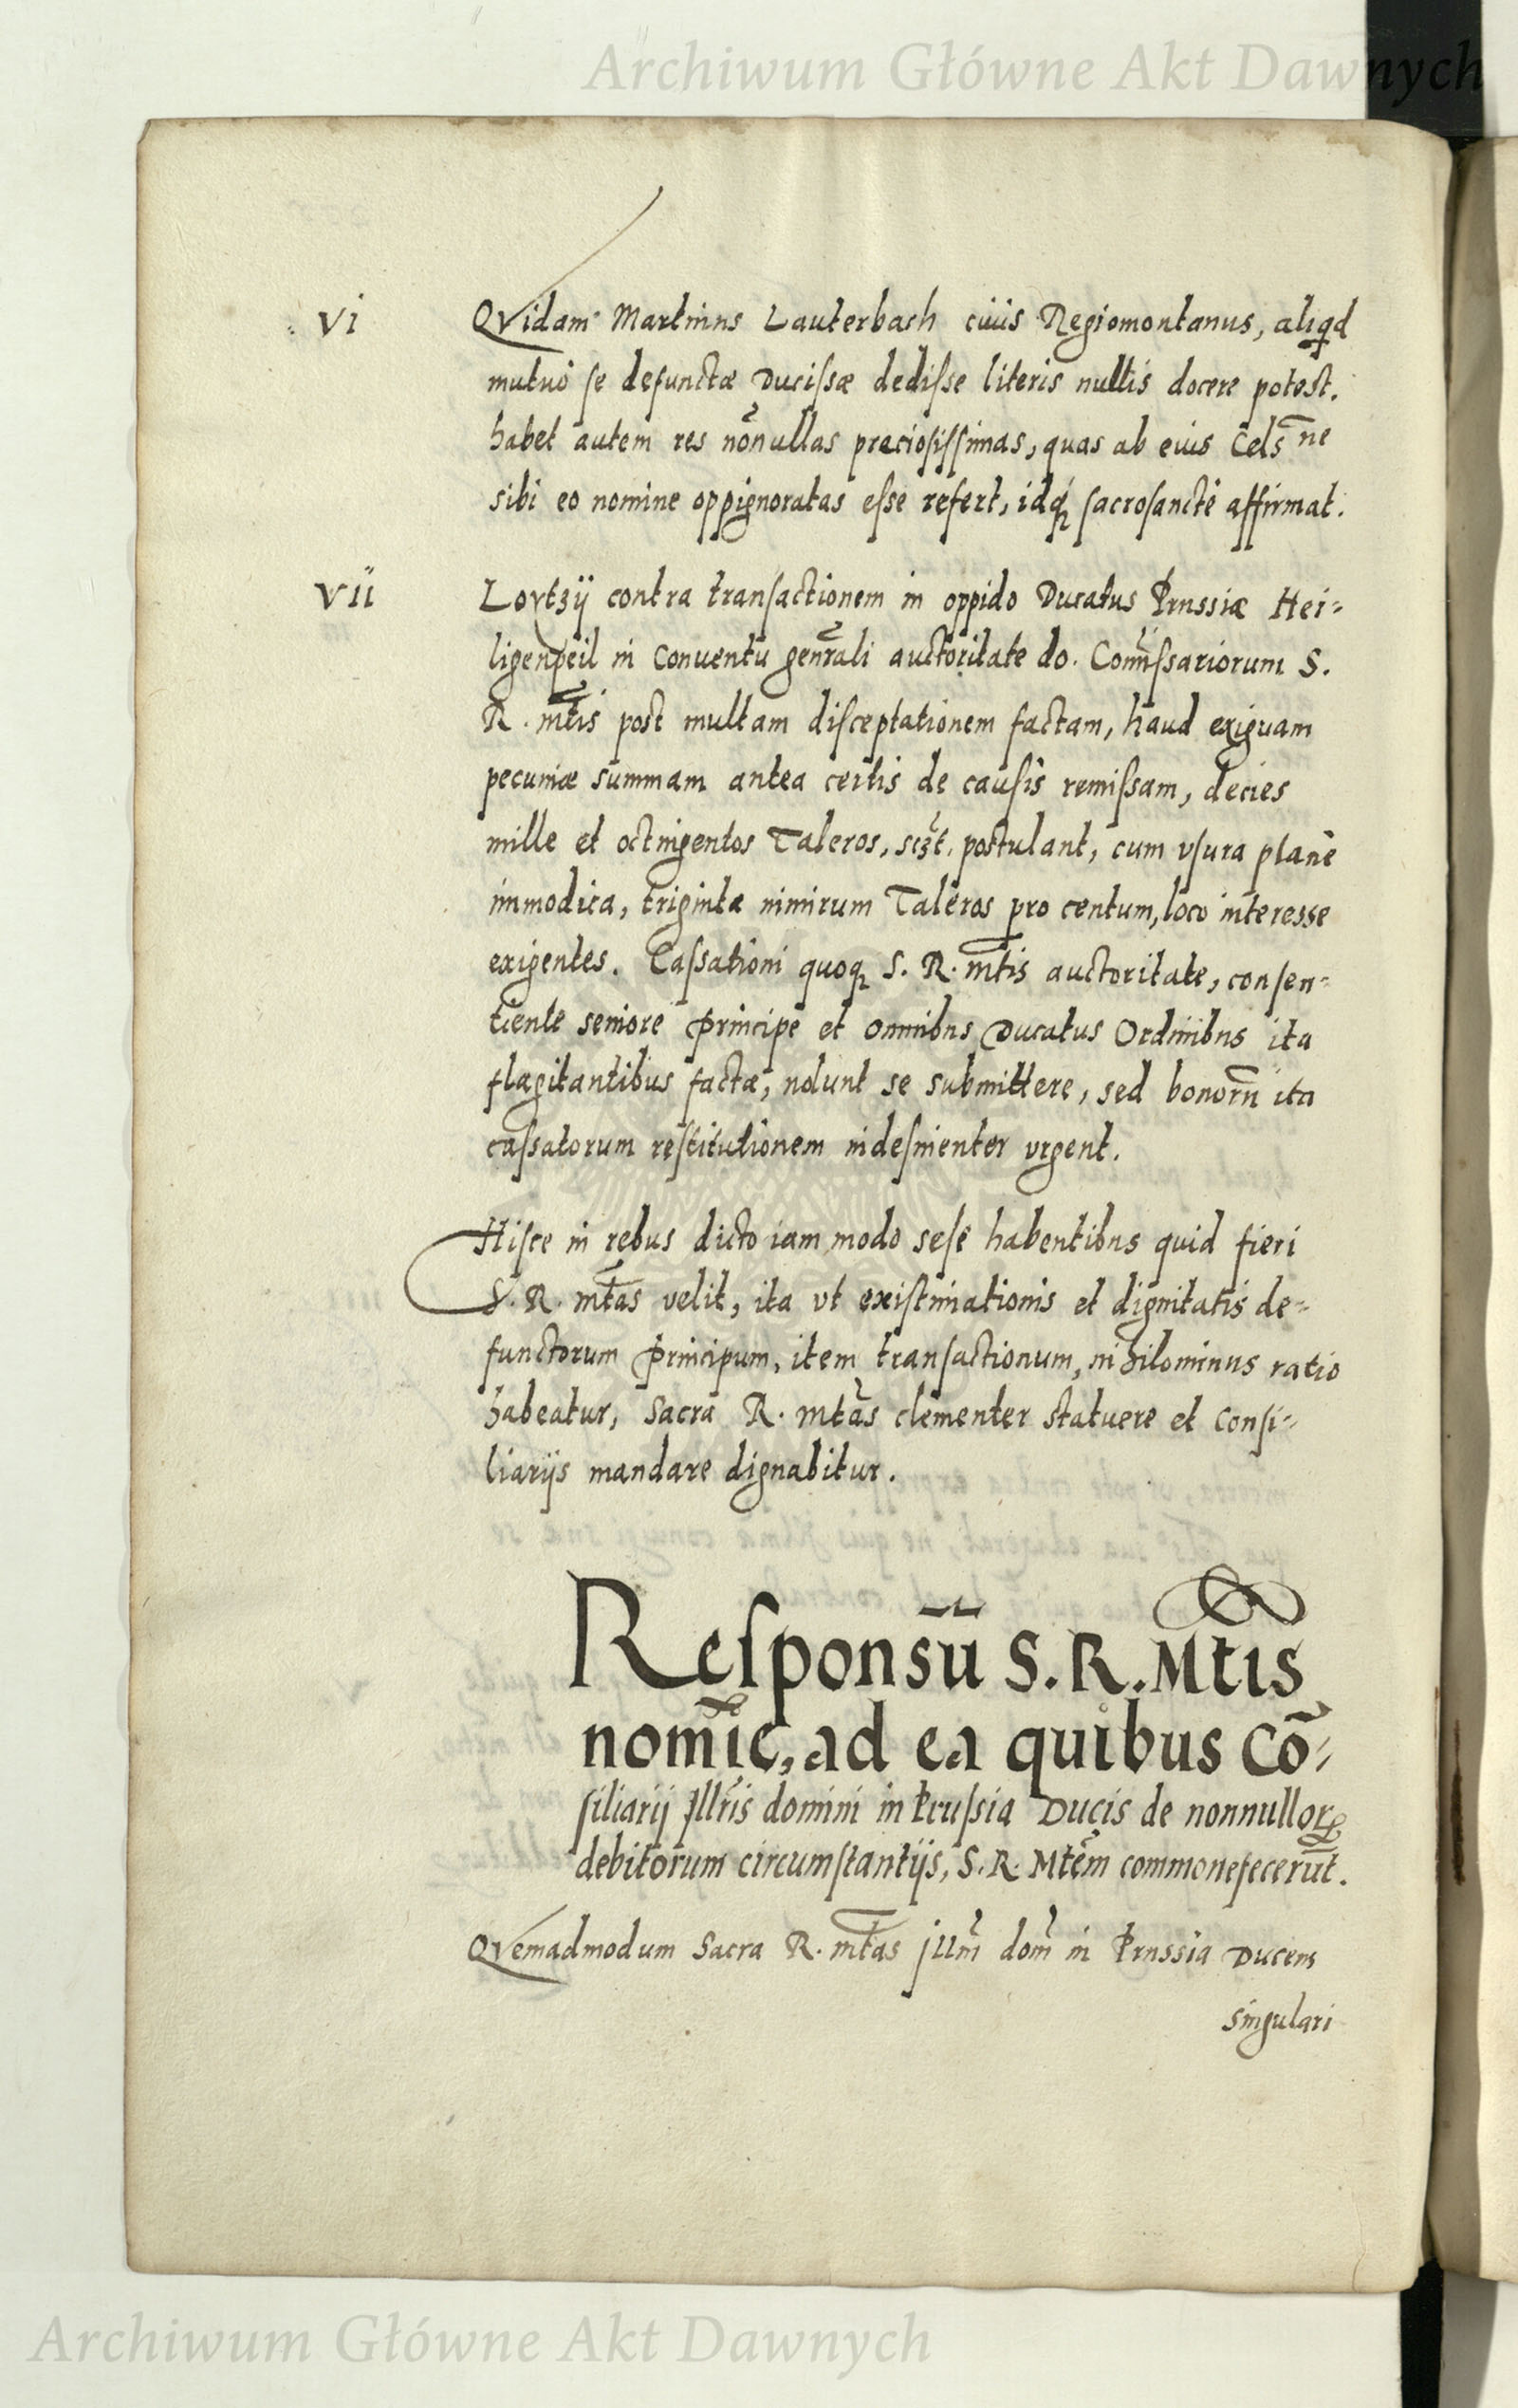 Archiwum Główne Akt Dawnych
vi
Qvidam Martinus Lauterbach ciuis Regiomontanus, aliqd
mutuò se defunctæ Ducissæ dedisse literis nullis docere potest.
habet autem res nõnullas preciosissimas, quas ab eius Cels̄ne
sibi eo nomine oppignoratas esse refert, idq́ sacrosanctè affirmat.
vii
Loytzij contra transactionem in oppido Ducatus Prussiæ Hei-
ligenpeil in Conuentu genr̃ali auctoritate do. Com̃issariorum S.
R. mt̃is post multam disceptationem factam, haud exiguam
pecuniæ summam antea certis de causis remissam, decies
mille et octingentos Taleros, sczt̃, postulant, cum vsura planè
immodica, triginta nimirum Taleros pro centum, loco interesse
exigentes. Cassationi quoq S. R. mt̃is auctoritate, consen-
tiente seniore Principe et omnibus Ducatus Ordinibus ita
flagitantibus factæ, nolunt se submittere, sed bonorũ ita
cassatorum restitutionem indesinenter vrgent.
Hisce in rebus dicto iam modo sese habentibus quid fieri
S. R. mt̃as velit, ita vt existimationis et dignitatis de-
functorum Principum, item transactionum, nihilominus ratio
habeatur, Sacra R. mt̃as clementer statuere et Consi-
liarijs mandare dignabitur.
Responsũ S. R. Mt̃is
nom̃ie, ad ea quibus Cõ-
siliarij Jllr̃is domini in Prussia Ducis de nonnullorꝝ
debitorum circumstantijs, S. R. Mt̃em commonefecerũt.
Qvemadmodum Sacra R. mt̃as Jllm̃ dom̃ in Prussia Ducem
singulari
Archiwum Główne Akt Dawnych